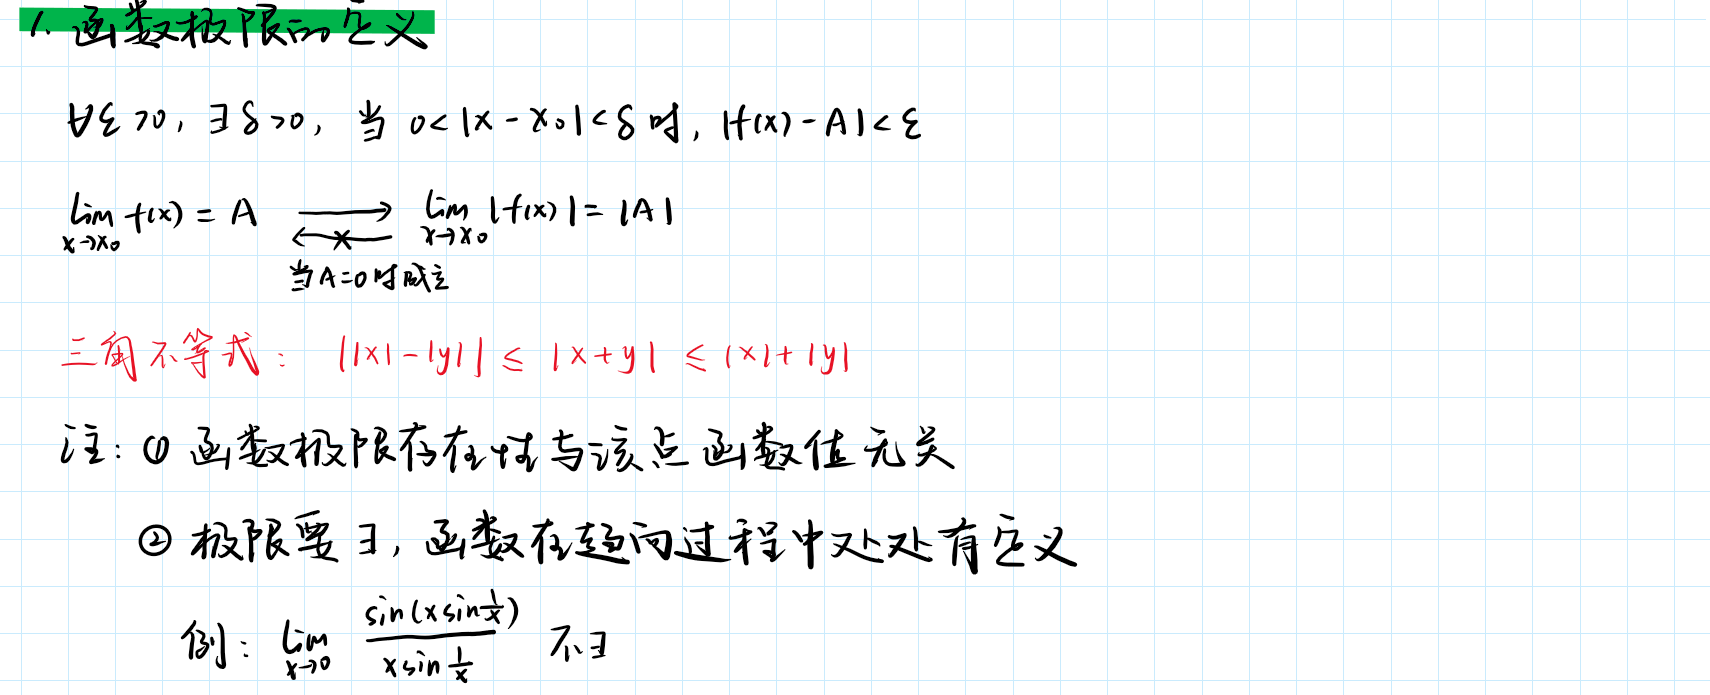 1. 函数极限的定义
∀ε>0, ∃δ>0, 当 0<|x-x₀|<δ时, |f(x)-A|<ε
lim_{x→x₀} f(x) = A ⟶ lim_{x→x₀} |f(x)| = |A|
⟵ ×
当A=0时成立
三角不等式: ||x|-|y|| ≤ |x+y| ≤ |x|+|y|
注: ① 函数极限存在性与该点函数值无关
② 极限要∃, 函数在趋向过程中处处有定义
例: lim_{x→0} sin(x sin 1/x) / (x sin 1/x) 不∃